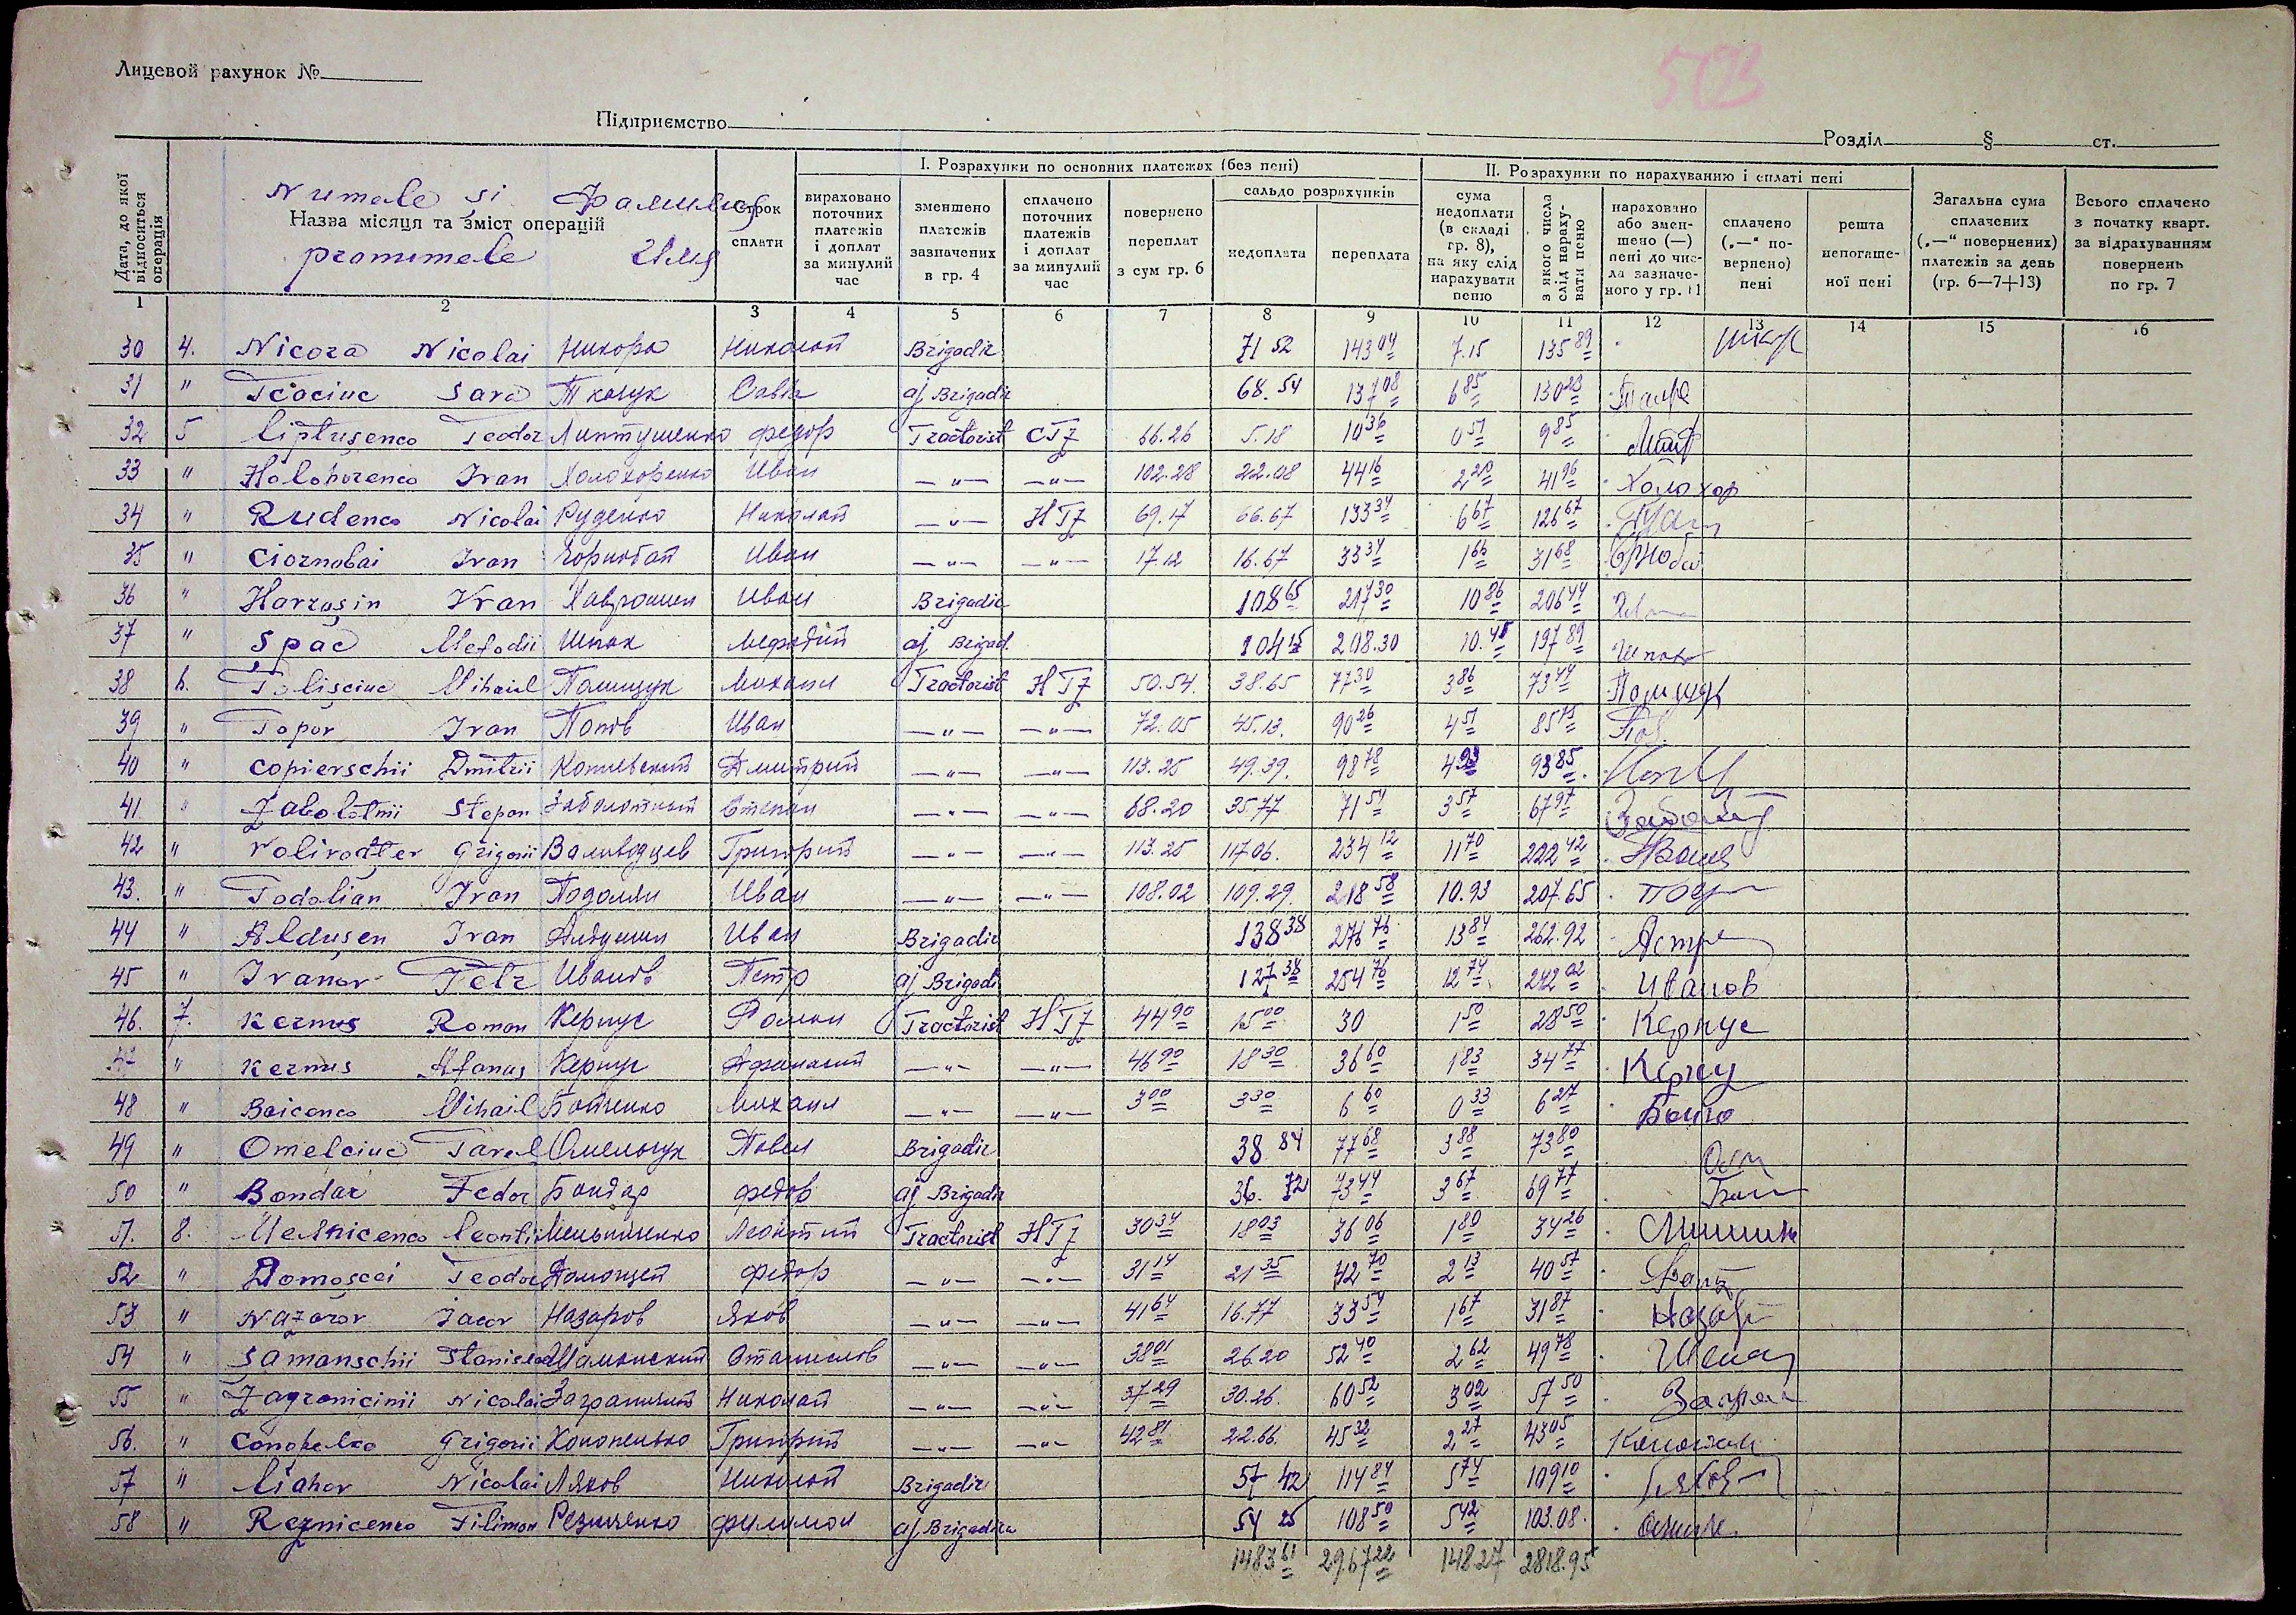 Лицевой рахунок №
Підприємство
Розділ § ст.
Дата, до якої відноситься операція
Numele și Фамилия
Назва місяця та зміст операцій
pronumele Имя
Строк сплати
I. Розрахунки по основних платежах (без пені)
вираховано поточних платежів і доплат за минулий час
зменшено платежів зазначених в гр. 4
сплачено поточних платежів і доплат за минулий час
повернено переплат з сум гр. 6
сальдо розрахунків
недоплата
переплата
II. Розрахунки по нарахуванню і сплаті пені
сума недоплати (в складі гр. 8), на яку слід нарахувати пеню
з якого числа слід нараху-вати пеню
нараховано або змен-шено (—) пені до чис-ла зазначе-ного у гр. 11
сплачено („—“ по-вернено) пені
решта непогаше-ної пені
Загальна сума сплачених („—“ повернених) платежів за день (гр. 6—7+13)
Всього сплачено з початку кварт. за відрахуванням повернень по гр. 7
1 2 3 4 5 6 7 8 9 10 11 12 13 14 15 16
30 4. Nicora Nicolai Никора Николай Brigadir 71 52 143 04 7.15 135 89
31 " Tcaciuc Sava Ткачук Савва aj Brigadir 68.54 137 08 6 85 130 23
32 5 Liptușenco Teodor Липтушенко Федор Tractorist СТЗ 66.26 5.18 10 36 0 51 9 85
33 " Holohorenco Ivan Холохоренко Иван —"— —"— 102.28 22.08 44 16 2 20 41 96 Холохор
34 " Rudenco Nicolai Руденко Николай —"— НТЗ 69.17 66.67 133 34 6 67 126 67
35 " Ciornobai Ivan Чорнобай Иван —"— —"— 17.12 16.67 33 34 1 66 31 68
36 " Havrașin Ivan Хаврошин Иван Brigadir 108 65 217 30 10 86 206 44
37 " Șpac Mefodii Шпак Мефодий aj Brigad. 104 15 208.30 10.41 197 89 Шпак
38 6. Polișciuc Mihail Полищук Михаил Tractorist НТЗ 50.54 38.65 77 30 3 86 73 44 Полищук
39 " Popov Ivan Попов Иван —"— —"— 72.05 45.13. 90 26 4 51 85 75
40 " Copievschii Dmitrii Копиевский Дмитрий —"— —"— 113.25 49.39. 98 78 4 93 93 85
41 " Zabolotnii Stepan Заболотный Степан —"— —"— 68.20 35.77 71 54 3 57 67 97
42 " Volivodțev Grigorii Валиводцев Григорий —"— —"— 113.25 117 06. 234 12 11 70 222 42
43. " Podolian Ivan Подолян Иван —"— —"— 108.02 109.29. 218 58 10.93 207.65
44 " Aldușen Ivan Алдушин Иван Brigadir 138 38 276 76 13 84 262.92
45 " Ivanov Petr Иванов Петр aj Brigadir 127 38 254 76 12 74 242 02 Иванов
46. 7. Kernus Roman Кернус Роман Tractorist НТЗ 44 90 15 00 30 1 50 28 50 Кернус
47 " Kernus Afanas Кернус Афанасий —"— —"— 46 90 18 30 36 60 1 83 34 77
48 " Boicenco Mihail Бойченко Михаил —"— —"— 3 00 3 30 6 60 0 33 6 27
49 " Omelciuc Pavel Омельчук Павел Brigadir 38 84 77 68 3 88 73 80
50 " Bondar Fedor Бондар Федор aj Brigadir 36. 72 73 44 3 67 69 77
51. 8. Melnicenco Leontii Мельниченко Леонтий Tractorist НТЗ 30 34 18 03 36 06 1 80 34 26
52 " Domoșcei Teodor Домощей Федор —"— —"— 31 14 21 35 42 70 2 13 40 57
53 " Nazarov Iacov Назаров Яков —"— —"— 41 64 16.77 33 54 1 67 31 87
54 " Șamanschii Stanislav Шаманский Станислав —"— —"— 38 01 26.20 52 40 2 62 49 78
55 " Zagranicinii Nicolai Заграничный Николай —"— —"— 37 29 30.26. 60 52 3 02 57 50
56. " Conopelco Grigorii Конопелько Григорий —"— —"— 42 81 22.66. 45 32 2 27 43 05
57 " Liahov Nicolai Ляхов Николай Brigadir 57 42 114 84 5 74 109 10
58 " Reznicenco Filimon Резниченко Филимон aj Brigadira 54 25 108 50 5 42 103.08.
1483 61 2967 22 148 27 2818.95